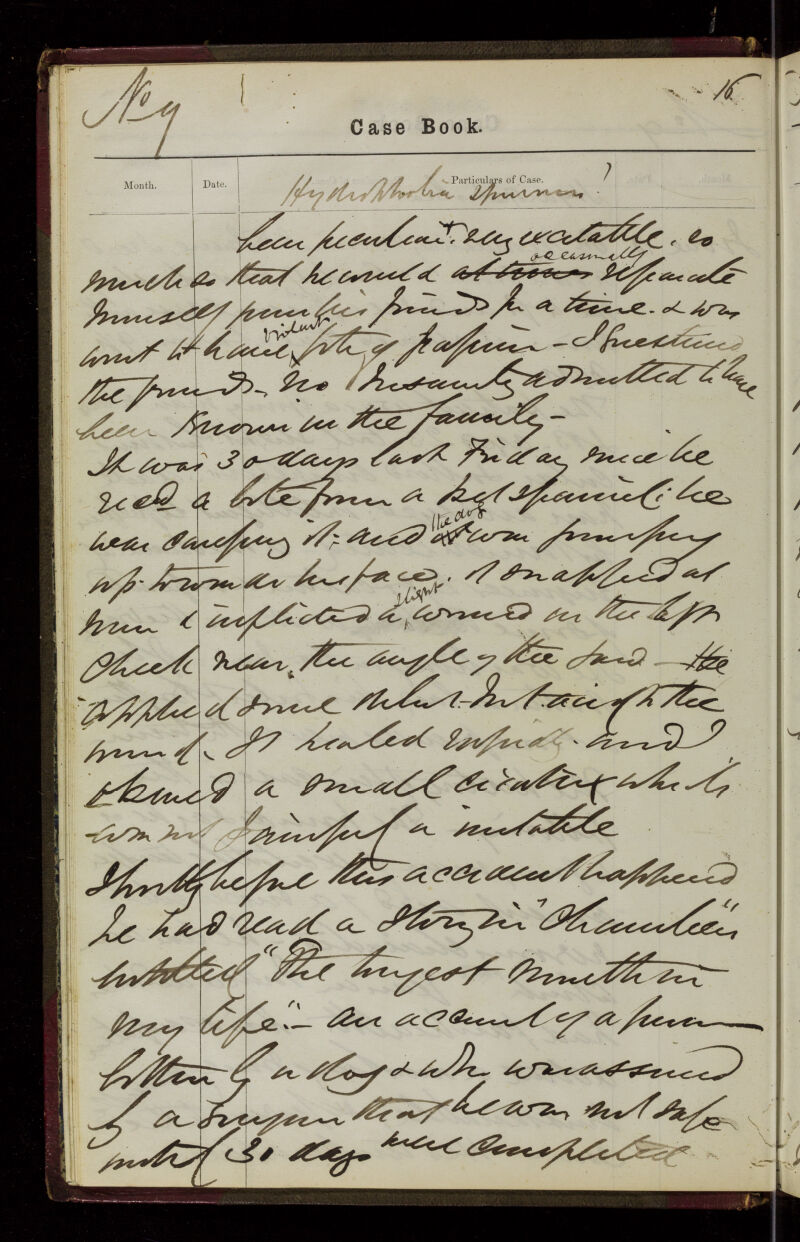 No 9
16
Case Book.
Month. Date. Particulars of Case.
Hydrophobia ?
been peculiar & very excitable. so
much so that he would at times occasionally separate
himself from his friends for a time. & was
wont to have violent fits of passion - I questioned
the friends - no Insanity admitted to have
been known in the family -
It was 30 days last Friday since he
recd a bite from a pet spaniel: he
was caressing it: and it the dog was jumping
up towards his face. it snapped at
him & inflicted a slight wound on the left
cheek near the angle of the jaw - He
applied some to the
wound. It healed rapidly. and I
a small cicatrix which
was not painful or irritable
Shortly before this accident happened
he had read a story in "Chambers"
entitled "The longest month in
my life" - an account of a person
bitten by a dog & who was assured
by a surgeon that he was not safe
until 30 days were completed